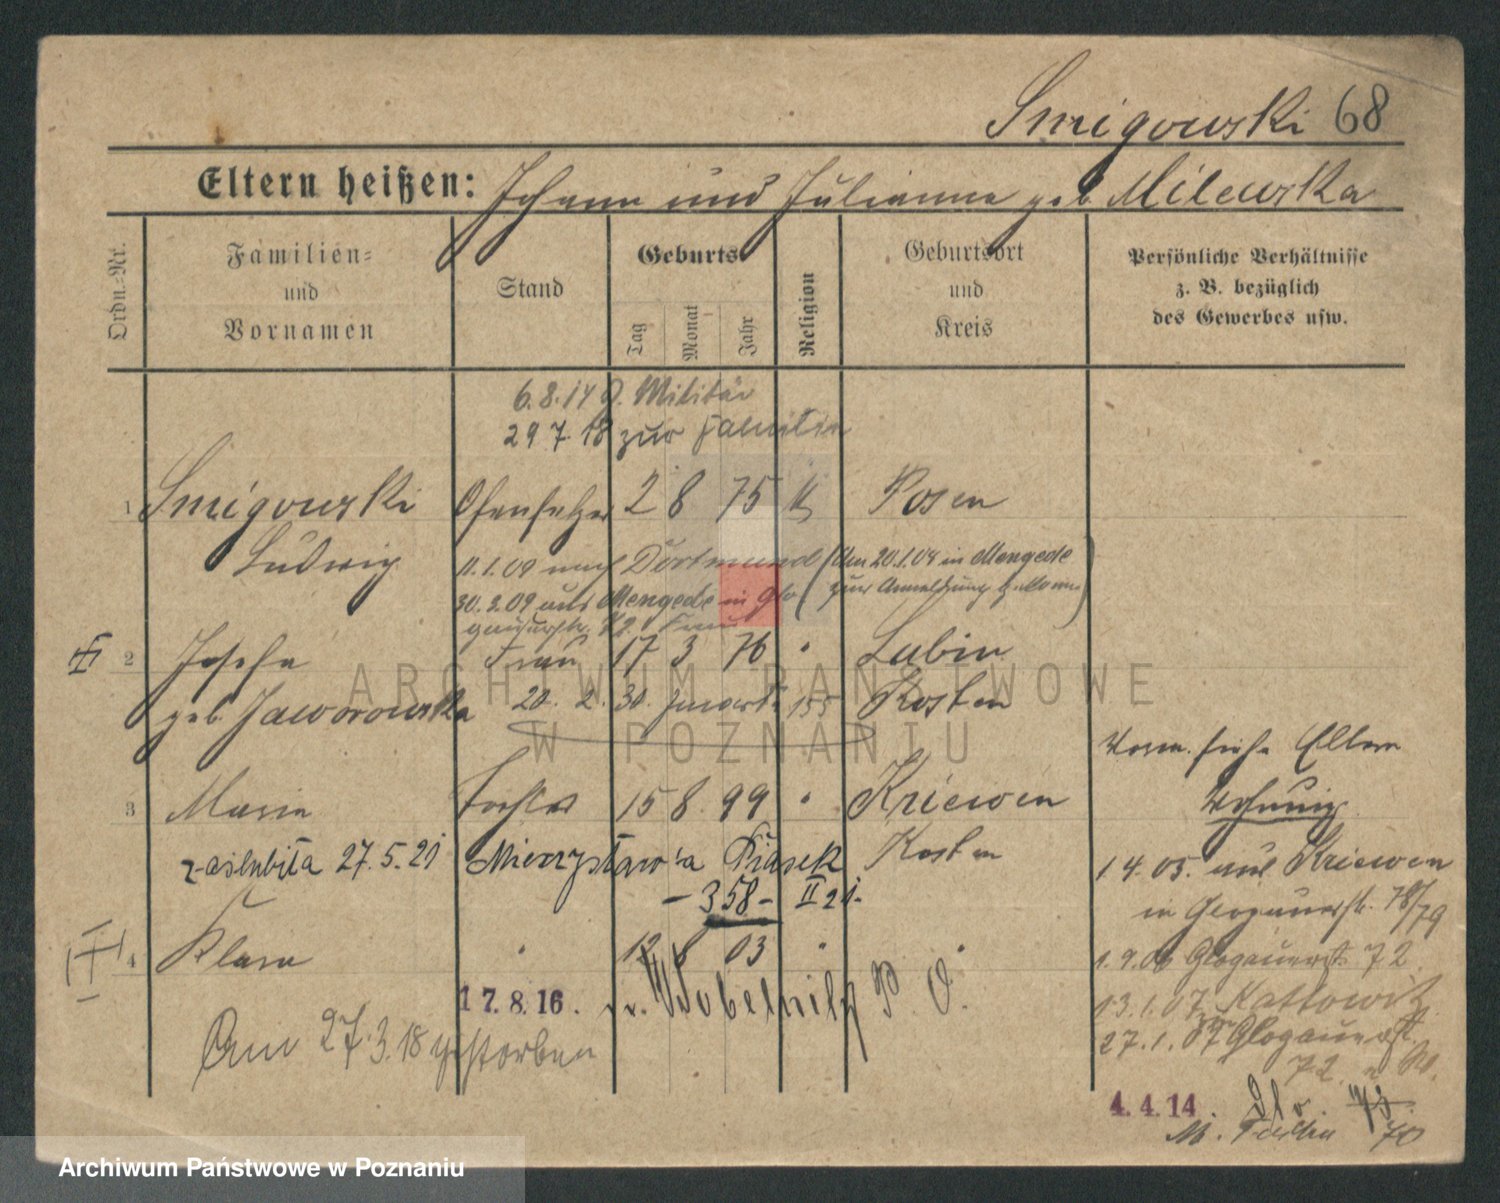 Smigowski 68
Eltern heißen: Johann und Julianna geb. Milewska
Ordn.=Nr.
Familien=
und
Vornamen
Stand
Geburts
Tag
Monat
Jahr
Religion
Geburtsort
und
Kreis
Persönliche Verhältnisse
z. B. bezüglich
des Gewerbes usw.
6.8.14 z. Militär
29 7. 18 zur Familie
1 Smigowski Ofensetzer 2 8 75 k Posen
Ludwig
11.1.09 nach Dortmund (Am 20.1.09 in Mengede
zur Anmeldung gekommen)
30.3.09 aus Mengede in Glo
gauerstr. 72. Frau
2 Josefa Frau 17 3 76 " Lubin
geb. Jaworowska 20. 2. 30. 155 Kosten
3 Maria Tochter 15 8. 99 " Kriewen
Kosten
zaślubiła 27.5.21 Mieczysław'a Piasek
- 358 - II 21.
4 Klara " 12 8 03 " "
17.8.16. P. O.
Am 27.3.18 gestorben
Vorm. siehe Eltern
Wohnung
1 4. 05. aus Kriewen
in Glogauerstr. 78/79
1.9.06 Glogauerstr. 72
13.1.07. Kattowitz
27.1.07 Glogauerstr.
72.
4.4.14. Glo. 75.
70
ARCHIWUM PAŃSTWOWE
W POZNANIU
Archiwum Państwowe w Poznaniu